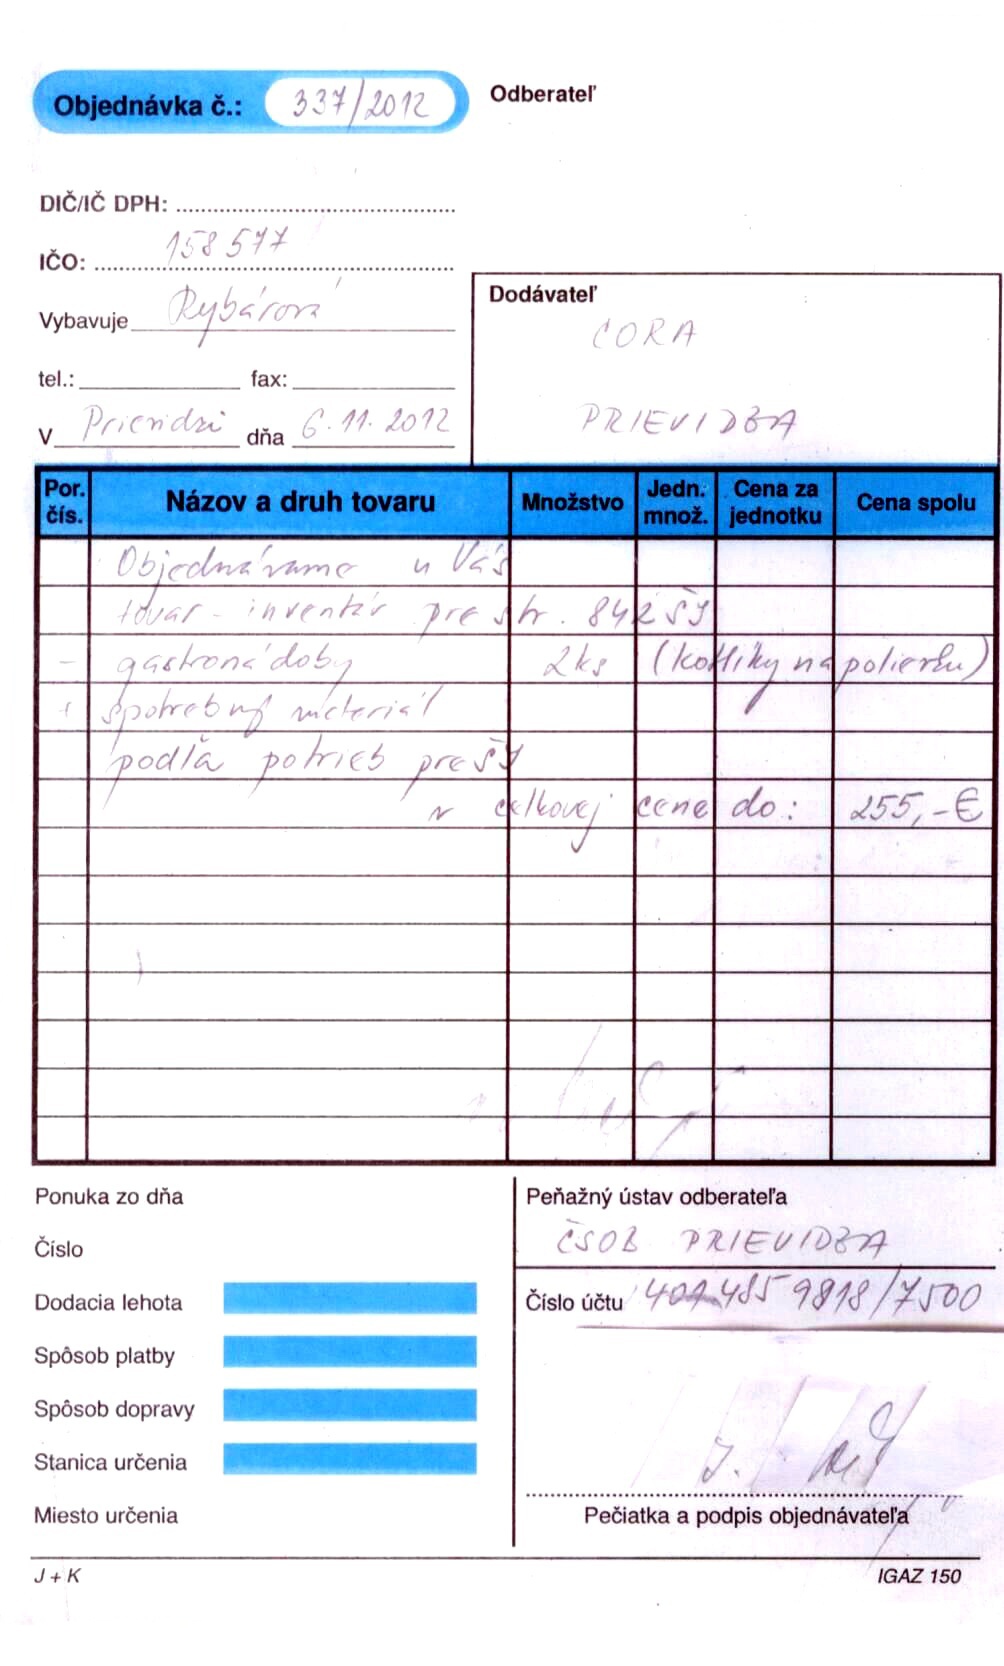 Objednávka č.: 337/2012
Odberateľ
DIČ/IČ DPH:
IČO: 158577
Vybavuje Rybárová
tel.: fax:
V Prievidzi dňa 6.11.2012
Dodávateľ
CORA
PRIEVIDZA
Por. čís. Názov a druh tovaru Množstvo Jedn. množ. Cena za jednotku Cena spolu
Objednávame u Vás
tovar - inventár pre str. 842 ŠJ
- gastronádoby 2ks (kotlíky na polievku)
+ spotrebný materiál
podľa potrieb pre ŠJ
v celkovej cene do: 255,- €
Ponuka zo dňa
Číslo
Dodacia lehota
Spôsob platby
Spôsob dopravy
Stanica určenia
Miesto určenia
Peňažný ústav odberateľa
ČSOB PRIEVIDZA
Číslo účtu 9818/7500
Pečiatka a podpis objednávateľa
J + K
IGAZ 150